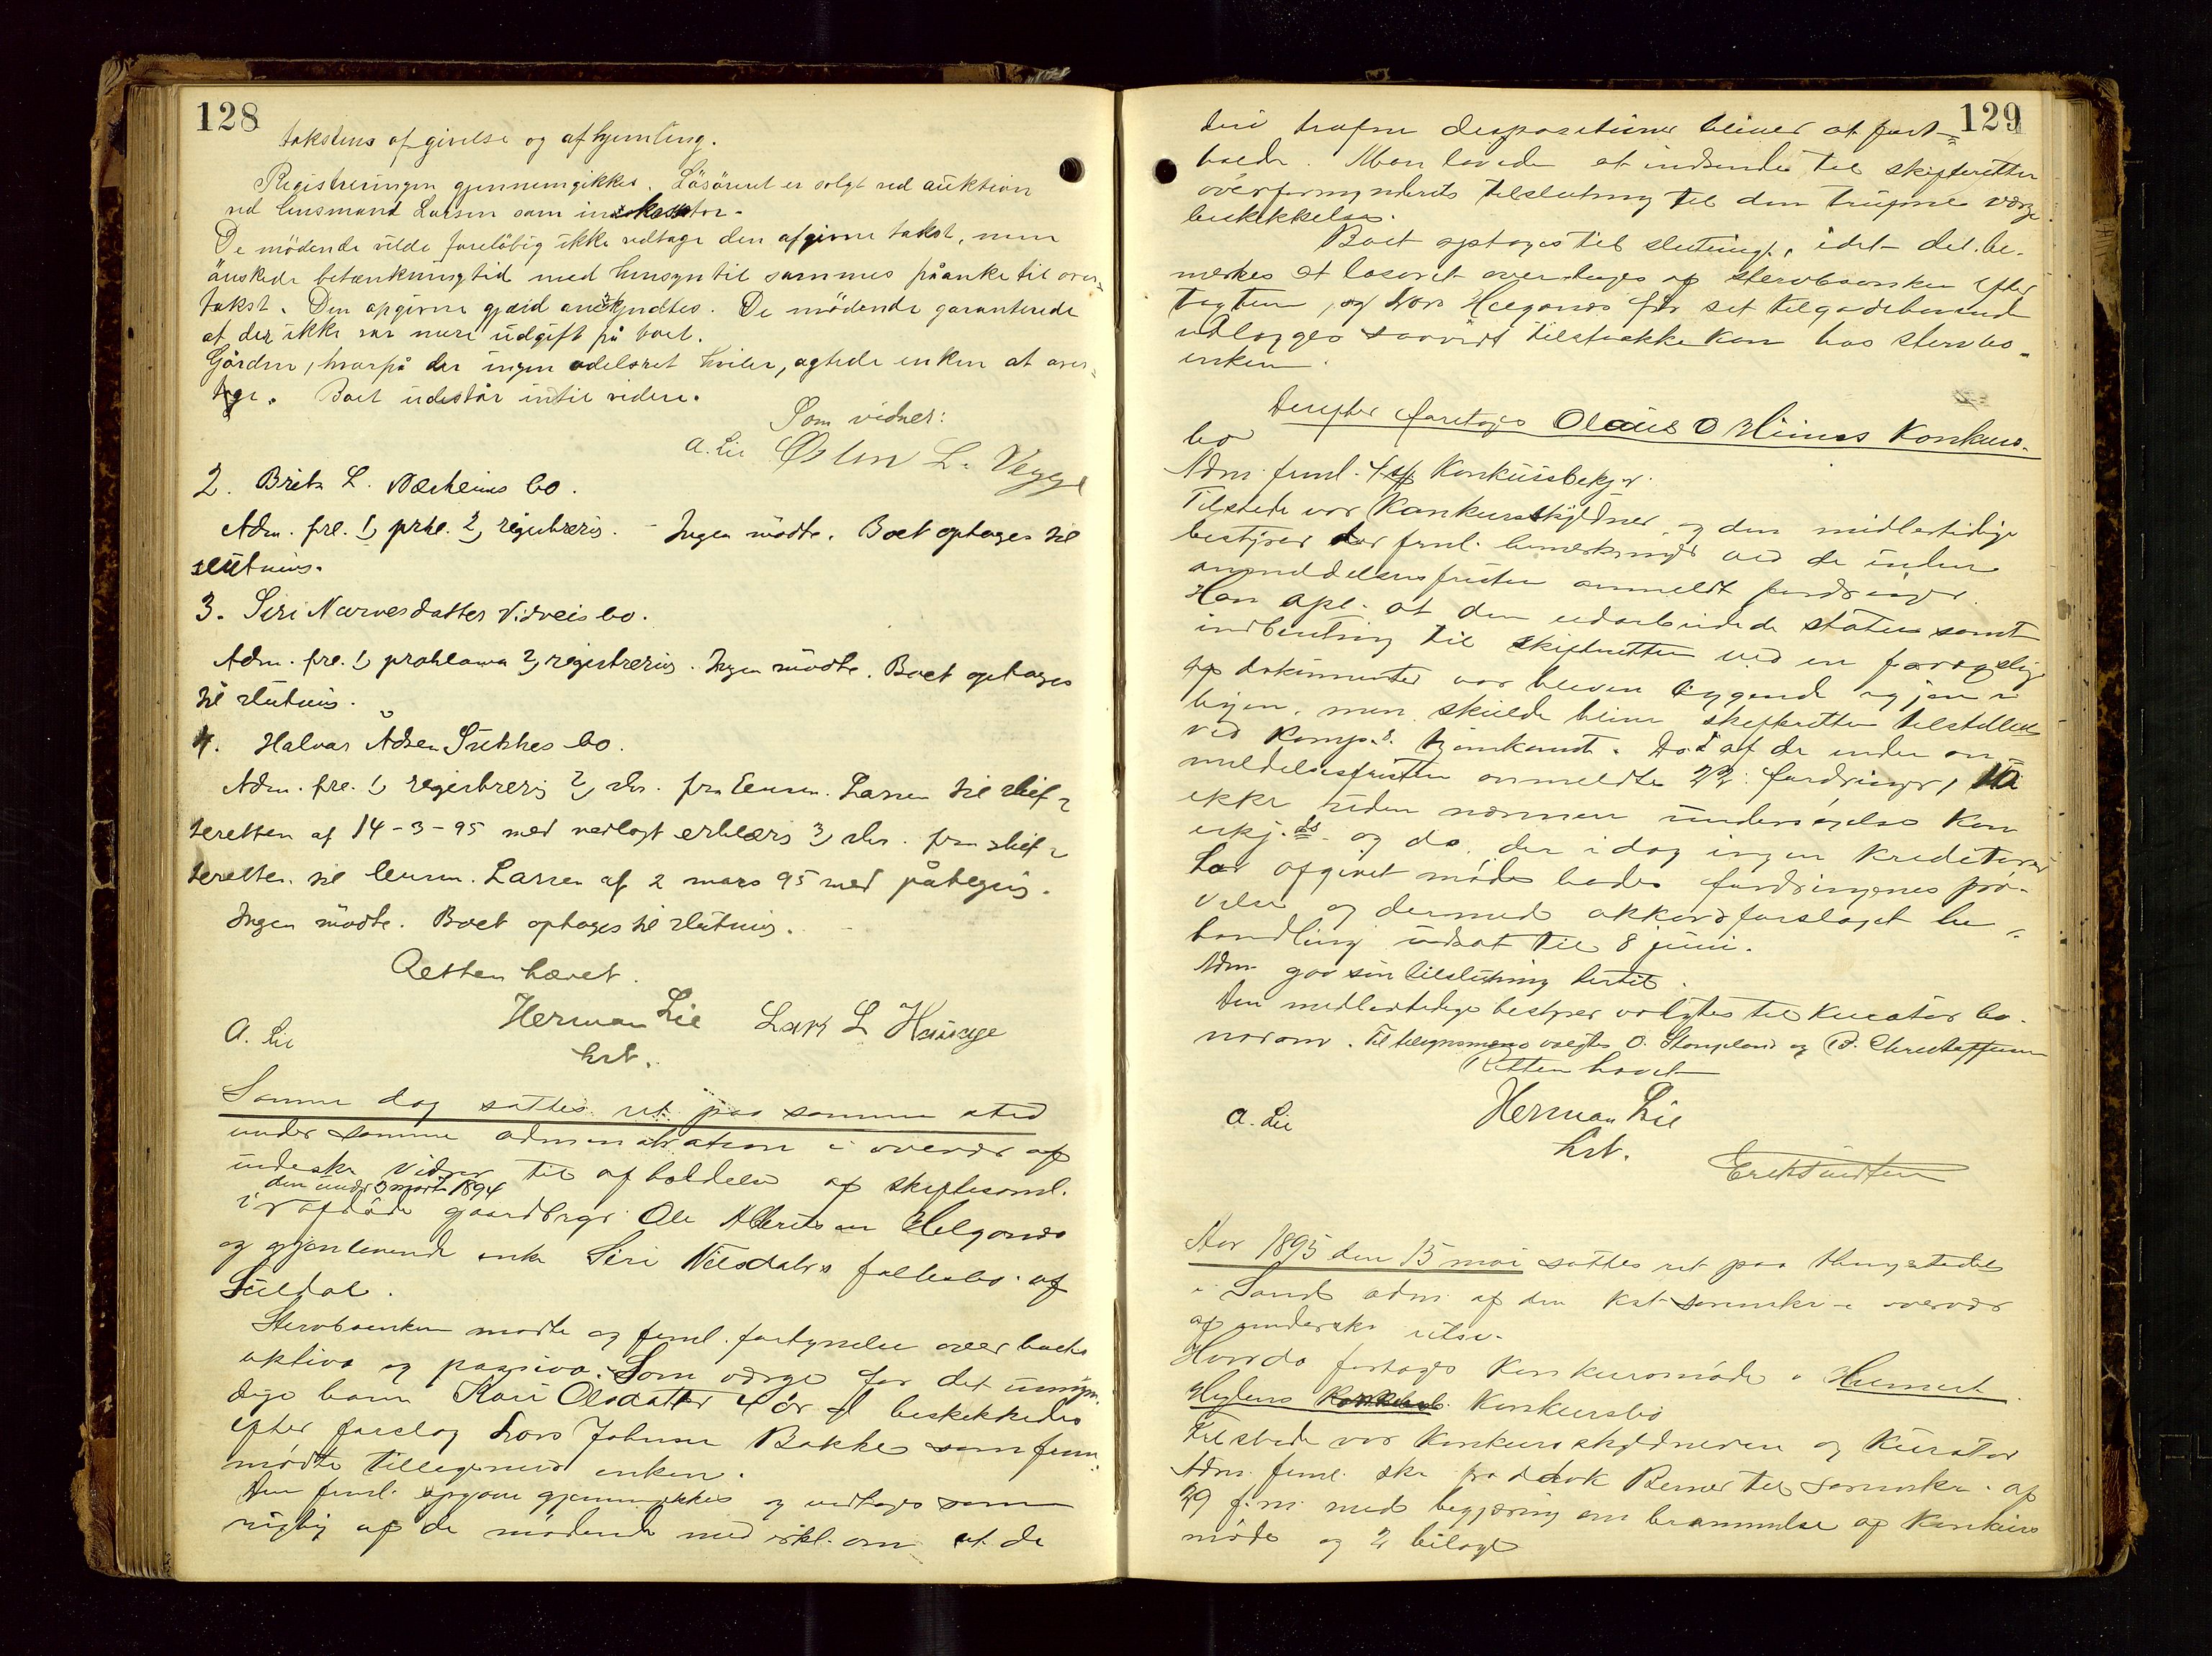 128
takstens afgivelse og afhjemling.
Registreringen gjennemgikkes. Lösöret er solgt ved auktion
ved lensmand Larsen som inkassator.
De mödende vilde foreløbig ikke vedtage den afgivne takst, men
önskede betænkningstid med hensyn til sammes påanke til over=
takst. Den opgivne gjæld                . De mödende garanterede
at der ikke var mere udgift på boet.
Gården, hvorpå der ingen odelsret hviler, agtede enken at over=
tage. Boet udestår intil videre.
Som vidner:
A. Lie Østen L. Vegge
2. Brita L.             bo.
Adm. fre. 1, prkl. 2, registrering. - Ingen mödte. Boet optages til
slutning.
3. Siri Narvesdatter Vidveis bo.
Adm. fre. 1, proklama 2, registrering. Ingen mödte. Boet optages
til slutning.
4. Halvar Adsen              bo.
Adm. fre. 1, registrering 2, skr. fra lensm. Larsen til skif=
teretten af 14-3-95 med vedlagt erklæring 3, skr. fra skif=
teretten til lensm. Larsen af 2 mars 95 med påtegning.
Ingen mödte. Boet optages til slutning.
Retten hævet.
A. Lie Herman Lie Lars L Hauage
kst.
Samme dag sattes ret paa samme sted
under samme administration i overvær af
undeskr vidner til afholdelse af skiftesaml.
den           marts 1894
i afdöde gaardbrgr Ole             Helganes
og gjenlevende enke Siri Nilsdatters fællesbo af
Suldal.
Stervboenken mødte og freml. fortegnelse over boets
aktiva og passiva. Som værge for det umyn=
dige barn Kari Olsdatter 4 år       beskikkedes
efter forslag Lars Johnsen Bakke som frem=
mødte tilligemed enken.
Den freml. opgave gjennemgikkes og vedtages som
rigtig af de mødende med erkl. om at de
129
deri trufne dispositioner bliver at fast=
holde. Man lovede at indsende til skifteretten
overformynderiets tilslutning til den trufne værge
beskikkelse.
Boet optages til slutning, idet det be=
merkes at løsøret overtages af stervboenken efter
taxten, og Lars Helganes får sit tilgodehavende
udlægges saavidt tilstrække kan hos stervbo=
enken.
Derefter foretages Olaus O           Konkurs=
bo
Adm freml. 1           Konkursbekj.
Tilstede var Konkursskyldner og den midlertidige
bestyrer der freml. bemærkninger ved de inden
anmeldelsesfristen anmeldt fordringer.
Han opl. at den udarbeidede status samt
indberetning til skifteretten ved en forsøgelig
af dokumenter var bleven liggende igjen i
byen, men skulde blive skifteretten tilstillet
ved komp.s hjemkomst. Da af de inden an=
meldelsesfristen anmeldte 22 fordringer, 10
ikke uden nærmere undersøgelse kan
erkj.des og da der idag ingen kreditorer
har afgivet møde         fordringenes prö=
velse og dermed akkordforslaget be=
handling udsat til 8 juni.
Adm gav sin tilslutning hertil.
Den midlertidige bestyrer valgtes til kurator bo=
norom. Til tilsynsmænd valgtes O. Stangeland og           Christoffersen
Retten hævet
A. Lie Herman Lie
kst.
Erik Knudsen
Aar 1895 den 15 mai sattes ret paa thingstedet
i Sand adm af den kst sorenskr i overvær
af underskr vitner.
Hvorda foretages Konkursmøde i
Hylens         Konkursbo
Tilstede var Konkursskyldneren og Kurator
Adm. freml. skr fra                 Berner til sorenskr. af
29 f.m. med begjæring om berammelse af Konkurs
møde og 2 bilage